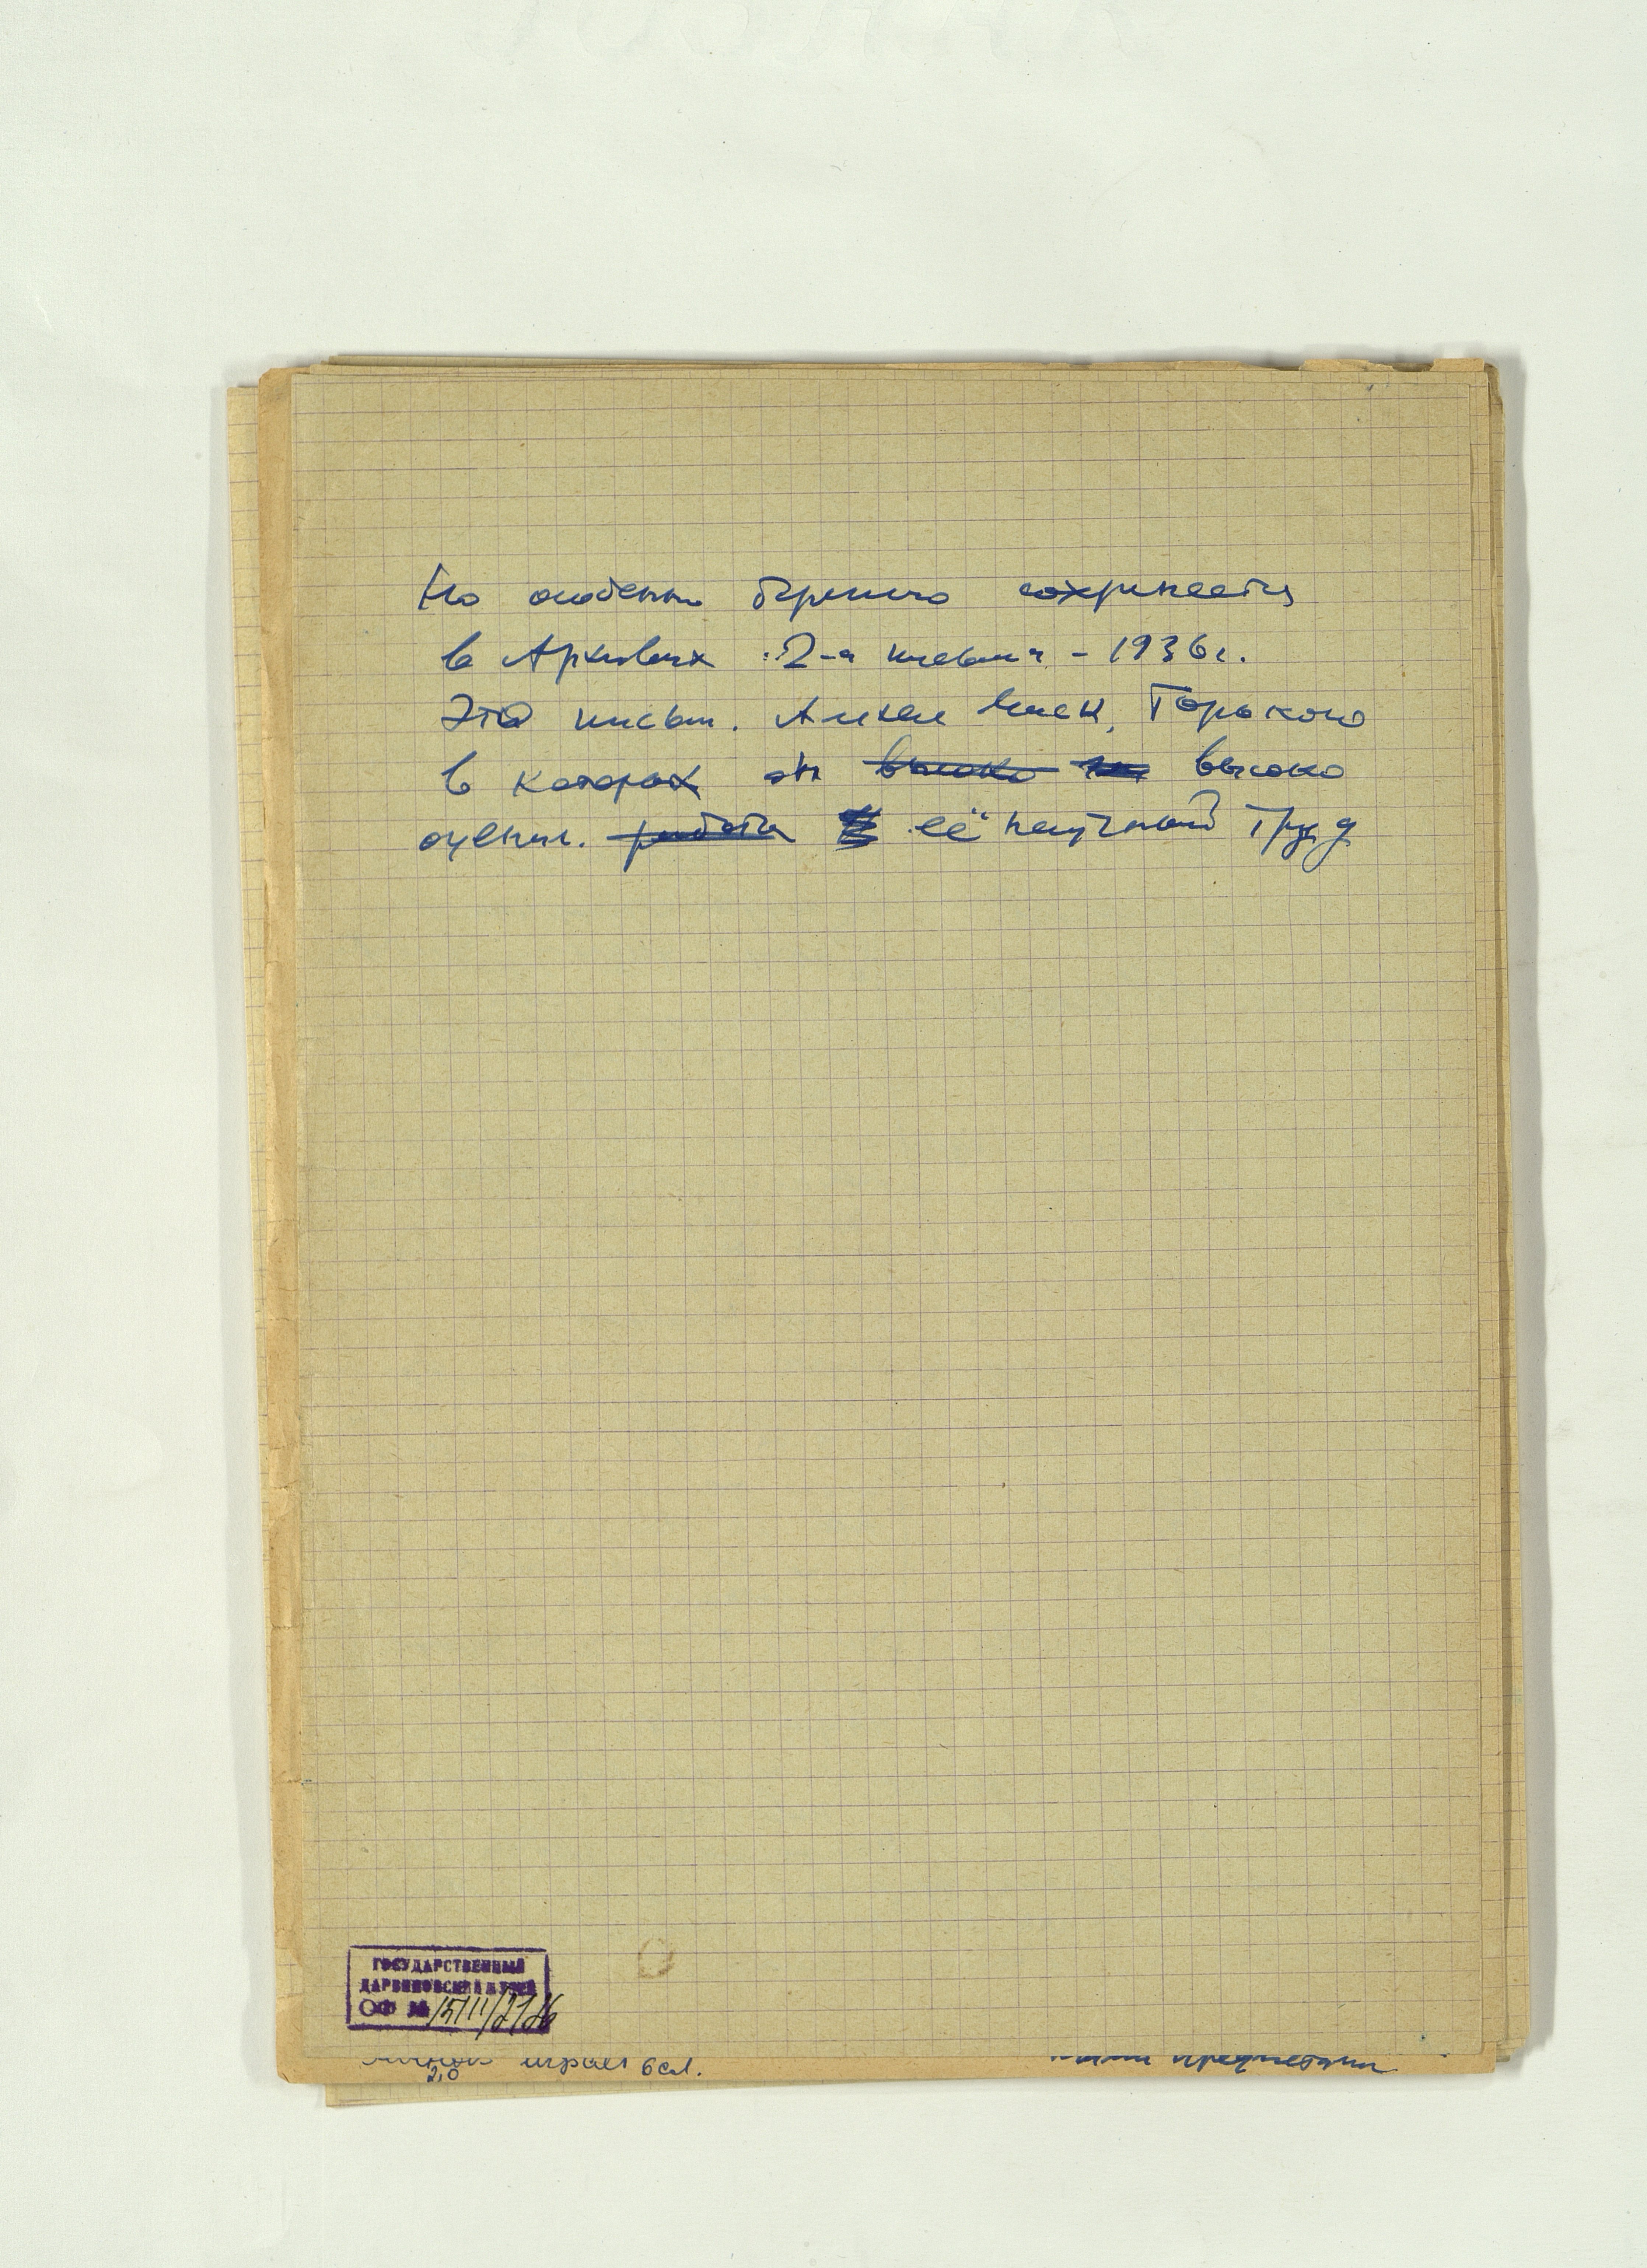 Но особенно бережно сохраняется
в Архивах 2-а письма - 1936г.
Эта письм. Алексе Макс. Горького
в которых он высоко высоко
оценил. работа её научный труд
ГОСУДАРСТВЕННЫЙ
ДАРВИНОВСКИЙ МУЗЕЙ
ОФ №
играет 6 сл.
2,0
предметами